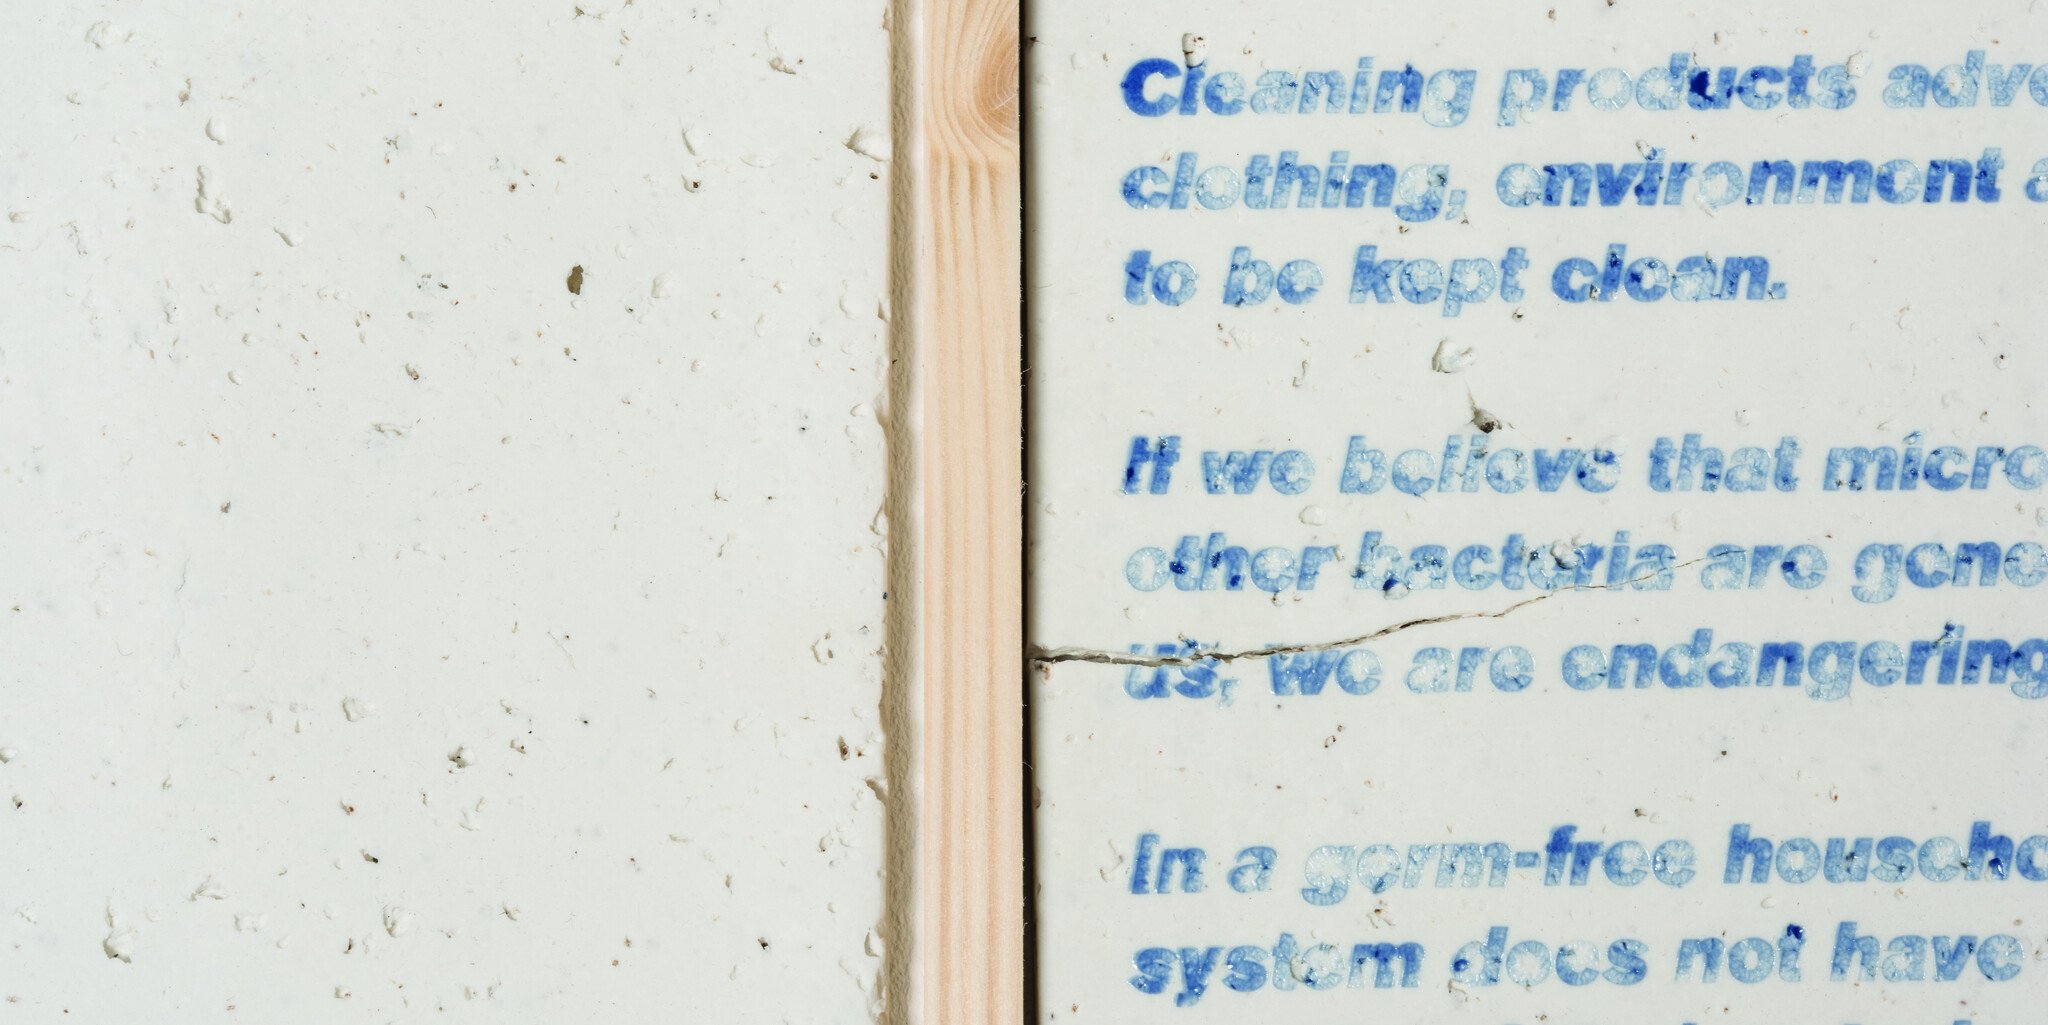 Cleaning products adve
clothing, environment a
to be kept clean.
If we believe that micro
other bacteria are gene
us, we are endangering
In a germ-free househo
system does not have